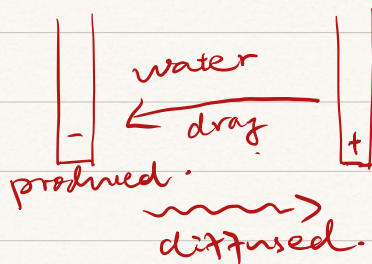 water
drag
- +
produced.
diffused.